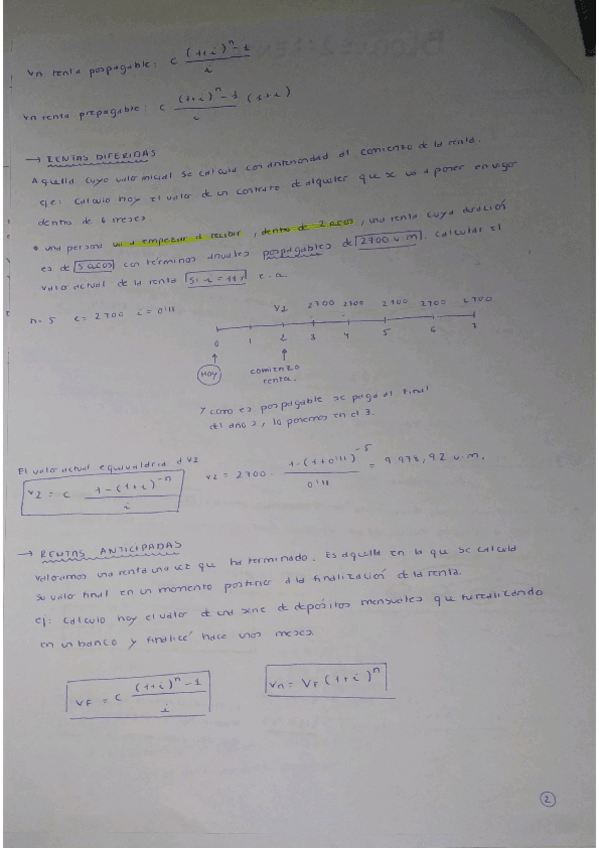 Vn renta pospagable: c ((1+i)^n - 1) / i
Vn renta prepagable: c ((1+i)^n - 1) / i (1+i)
→ RENTAS DIFERIDAS
Aquella cuyo valor inicial se calcula con anterioridad al comienzo de la renta.
ej: Calculo hoy el valor de un contrato de alquiler que se va a poner en vigor
dentro de 6 meses.
• una persona va a empezar a recibir, dentro de 2 años, una renta cuya duración
es de 5 años con términos anuales pospagables de 2700 u.m. Calcular el
valor actual de la renta si i = 11% e.a.
n=5 c=2700 i=0'11
V2 2700 2700 2700 2700 2700
0 1 2 3 4 5 6 7
HOY
comienzo
renta.
Y como es pospagable se paga al final
del año 2, lo ponemos en el 3.
El valor actual equivaldría a V2
V2 = c (1-(1+i)^-n) / i
V2 = 2700 · (1-(1+0'11)^-5) / 0'11 = 9.978,92 u.m.
→ RENTAS ANTICIPADAS
Valoramos una renta una vez que ha terminado. Es aquella en la que se calcula
su valor final en un momento posterior a la finalización de la renta.
ej: Calculo hoy el valor de una serie de depósitos mensuales que fui realizando
en un banco y finalicé hace unos meses.
VF = c ((1+i)^n - 1) / i
Vn = VF (1+i)^n
2